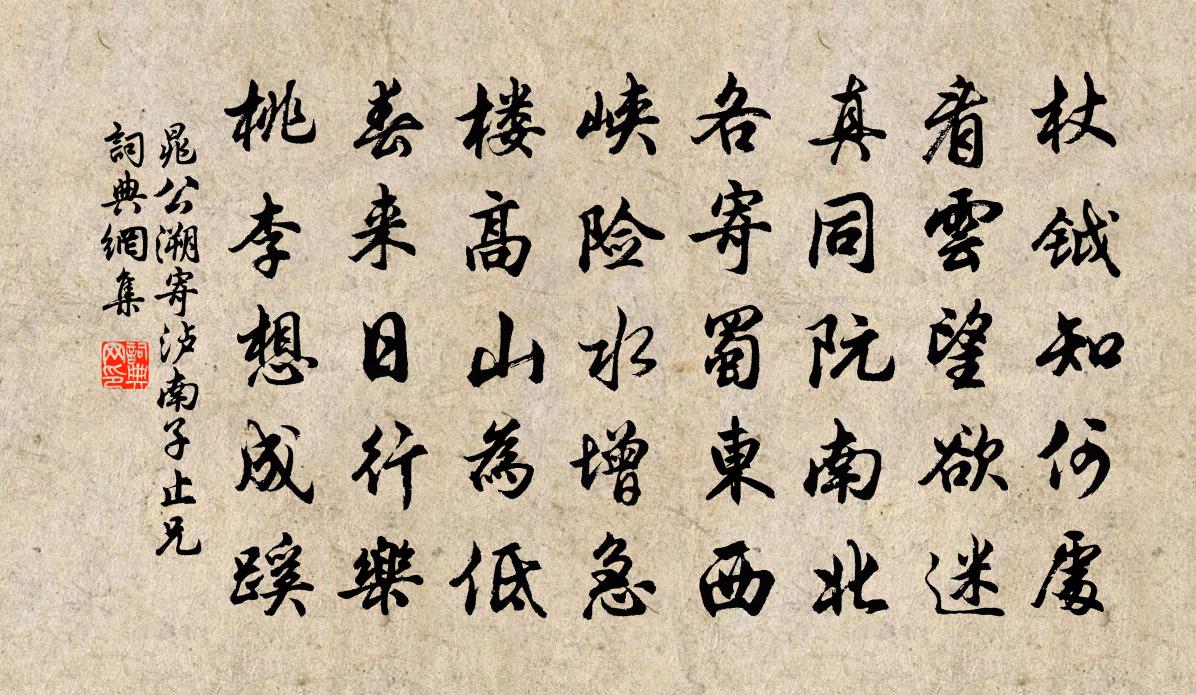 杖钺知何處
看雲望欲迷
真同阮南北
各寄蜀東西
峡险水增急
楼高山為低
春来日行樂
桃李想成蹊
晁公溯寄泸南子止兄
詞典網集
詞典网印